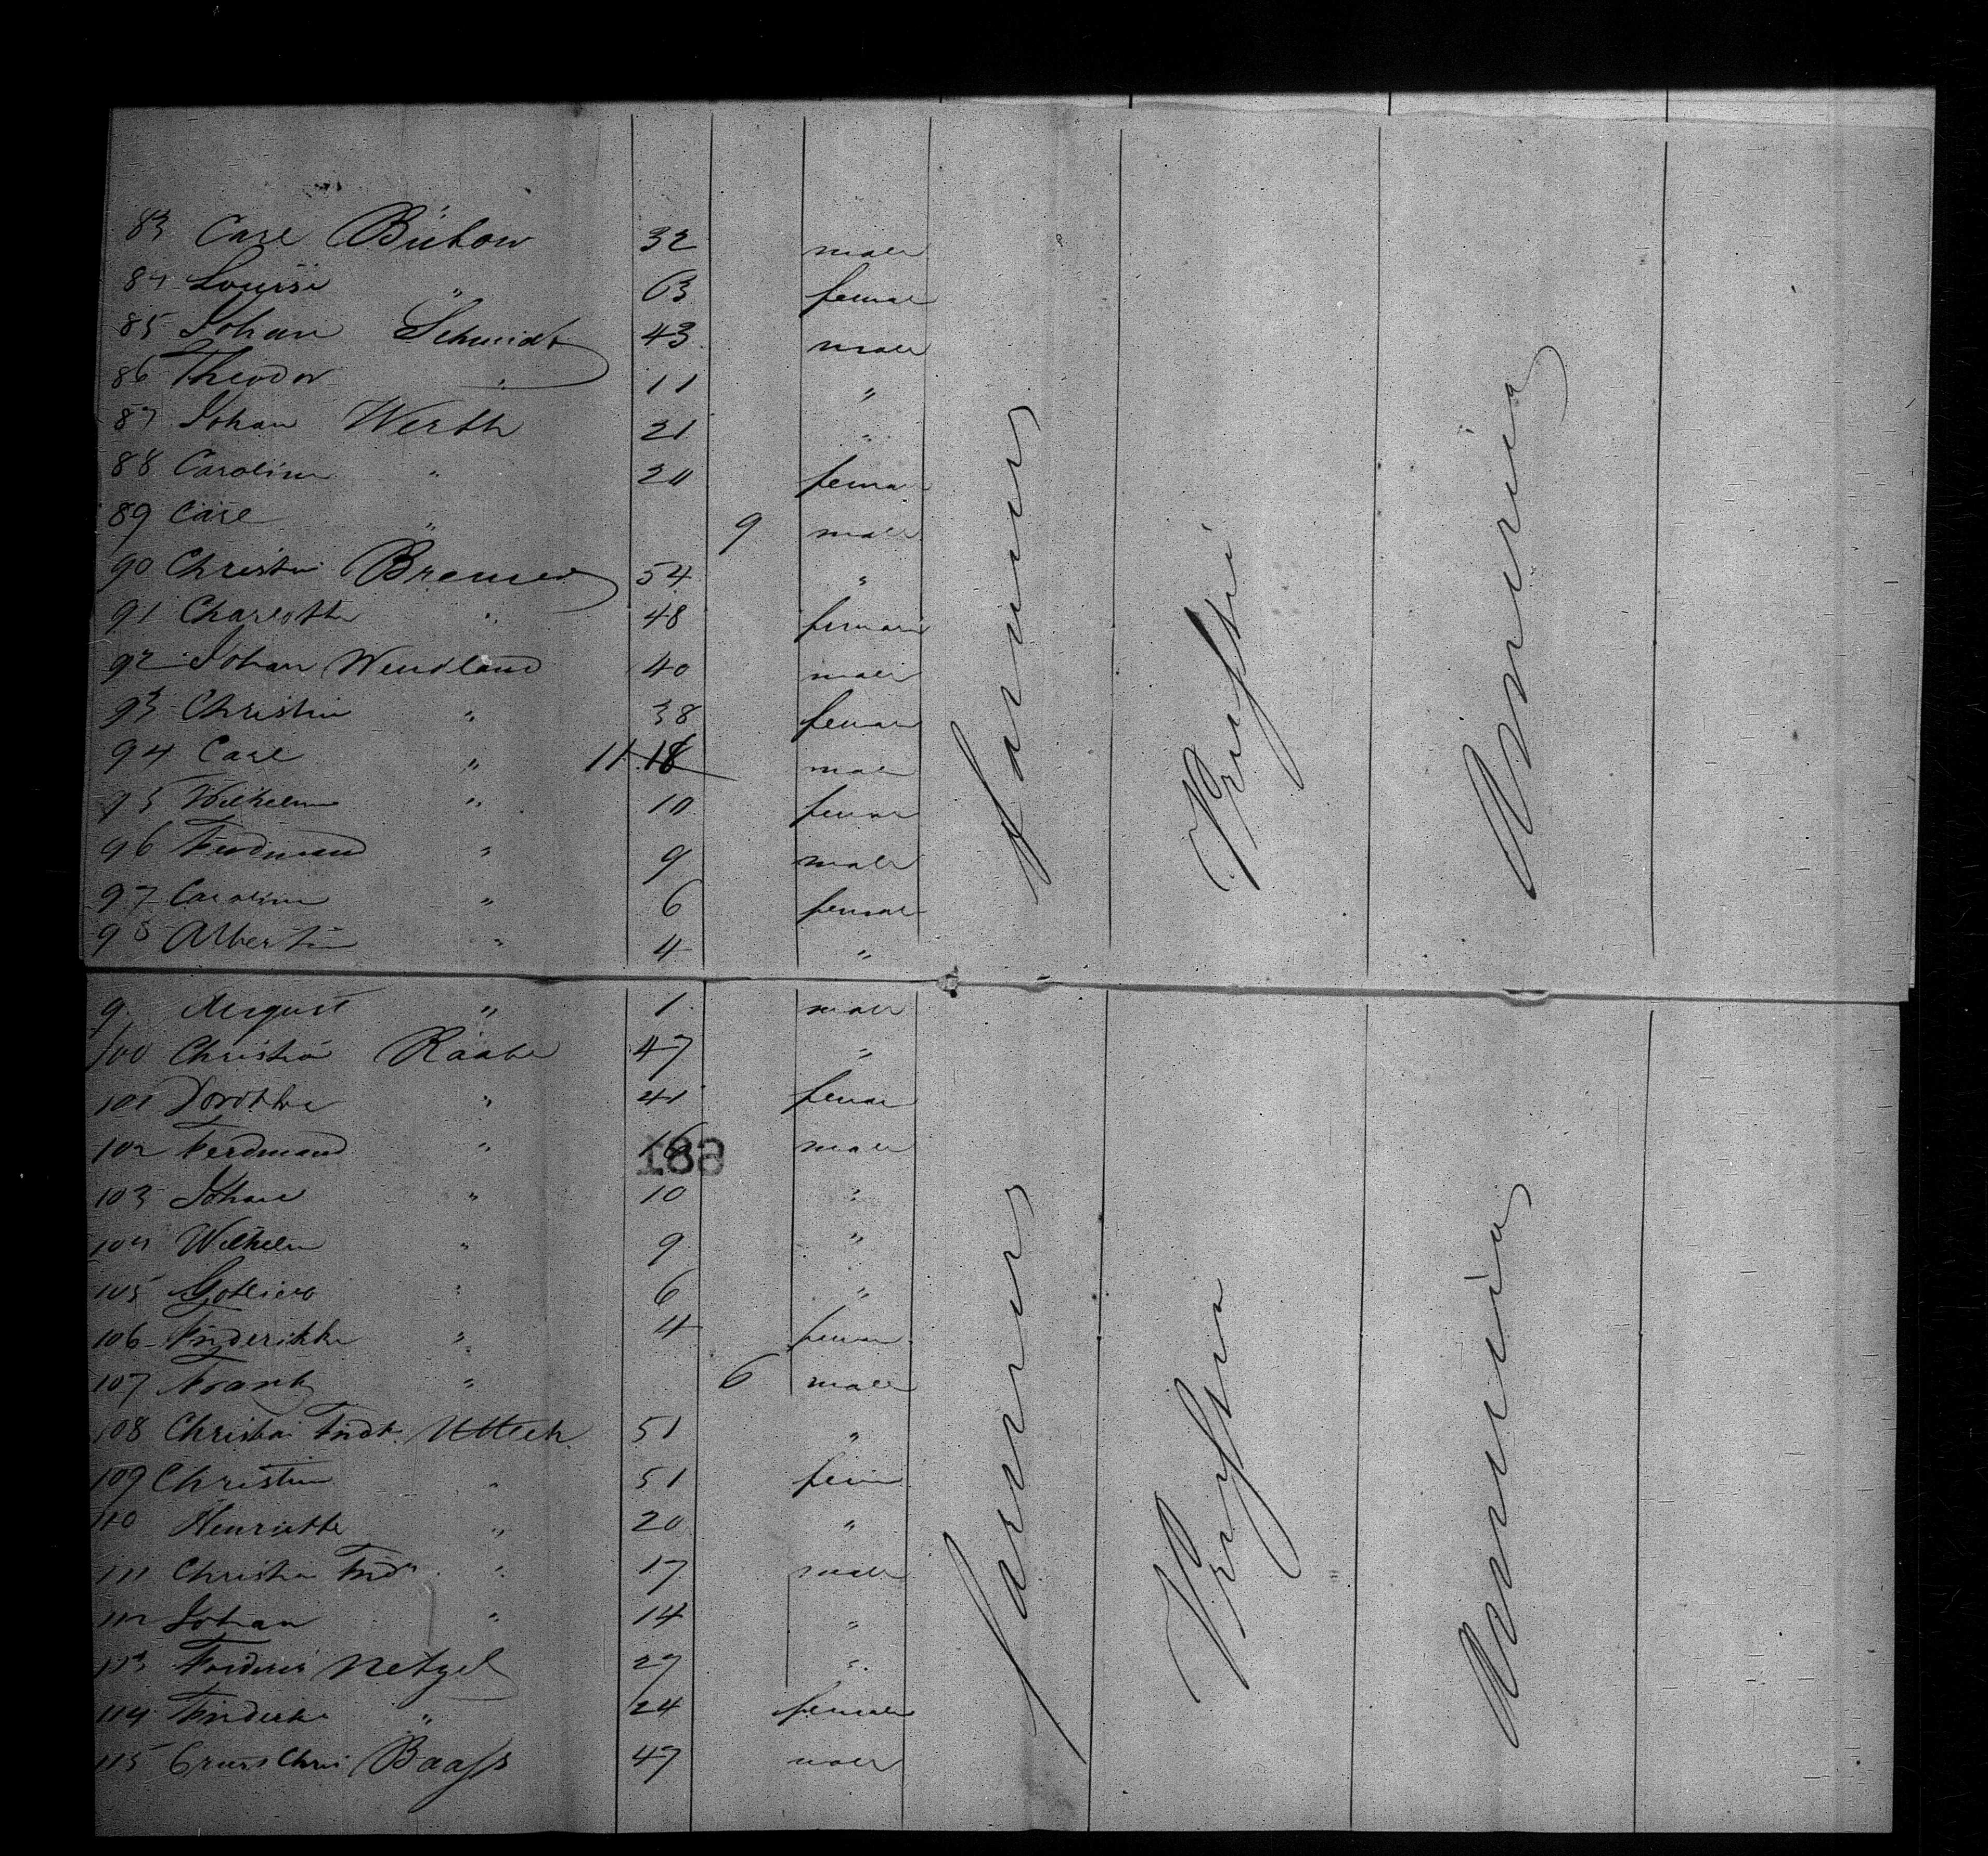 83 Carl Bütow 32 male
84 Louise " 63 female
85 Johan Schmidt 43 male
86 Theodor " 11 "
87 Johan Werth 21 "
88 Caroline " 20 female
89 Carl " 9 male
90 Christian Bremer 54 "
91 Charlotte " 48 female
92 Johan Wendland 40 male
93 Christine " 38 female
94 Carl " 11 18 male
95 Wilhelm " 10 female
96 Ferdinand " 9 male
97 Caroline " 6 female
98 Albertine " 4 "
farmers Prussia America
9 August " 1 male
100 Christian Raabe 47 "
101 Dorothe " 41 female
102 Ferdinand " 16 male
189
103 Johan " 10 "
104 Wilhelm " 9 "
105 Gottlieb " 6 "
106 Friderikke " 4 female
107 Frantz " 6 male
108 Christian Fridr. Uttech 51 "
109 Christine " 51 fem
110 Henriette " 20 "
111 Christian Fridr. " 17 male
112 Johan " 14 "
113 Frideric Netzel 27 "
114 Friderike " 24 female
115 Chris Baass 47 male
farmers Prussia America